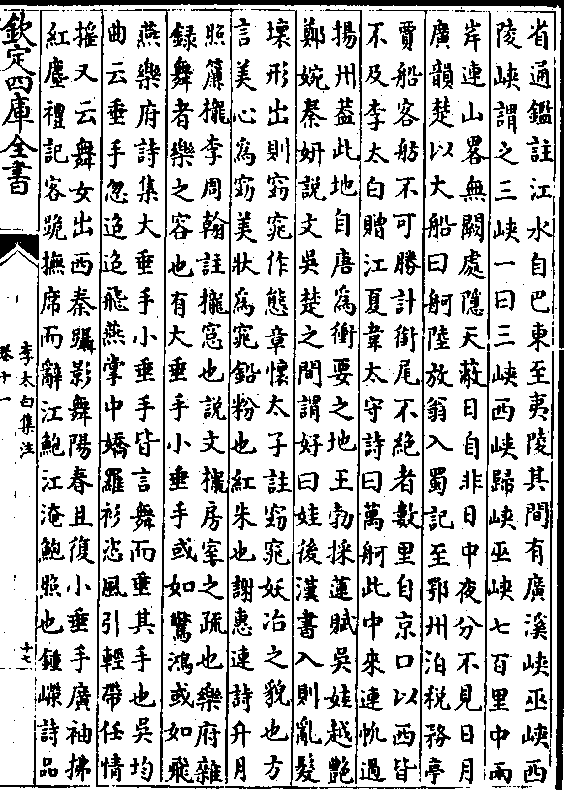 省通鑑註江水自巴東至夷陵其間有廣溪峽巫峽西
陵峽謂之三峽一曰三峽西峽歸峽巫峽七百里中兩
岸連山畧無闕處隱天蔽日自非日中夜分不見日月
廣韻楚以大船曰舸陸放翁入蜀記至鄂州泊税務亭
賈船客舫不可勝計銜尾不絕者數里自京口以西皆
不及李太白贈江夏韋太守詩曰萬舸此中來連帆過
揚州蓋此地自唐為衝要之地王勃採蓮賦吳娃越艷
鄭婉秦妍說文吳楚之間謂好曰娃後漢書入則亂髮
壊形出則窈窕作態章懷太子註窈窕妖冶之貌也方
言美心為窈美狀為窕鉛粉也紅朱也謝惠連詩升月
照簾櫳李周翰註櫳窓也說文櫳房室之疏也樂府雜
録舞者樂之容也有大垂手小垂手或如驚鴻或如飛
燕樂府詩集大垂手小垂手皆言舞而垂其手也吳均
曲云垂手忽迢迢飛燕掌中嬌羅衫恣風引輕帶任情
搖又云舞女出西秦躡影舞陽春且復小垂手廣袖拂
紅塵禮記客跪撫席而辭江鮑江淹鮑照也鍾嶸詩品
欽定四庫全書
李太白集注
卷十一
十七